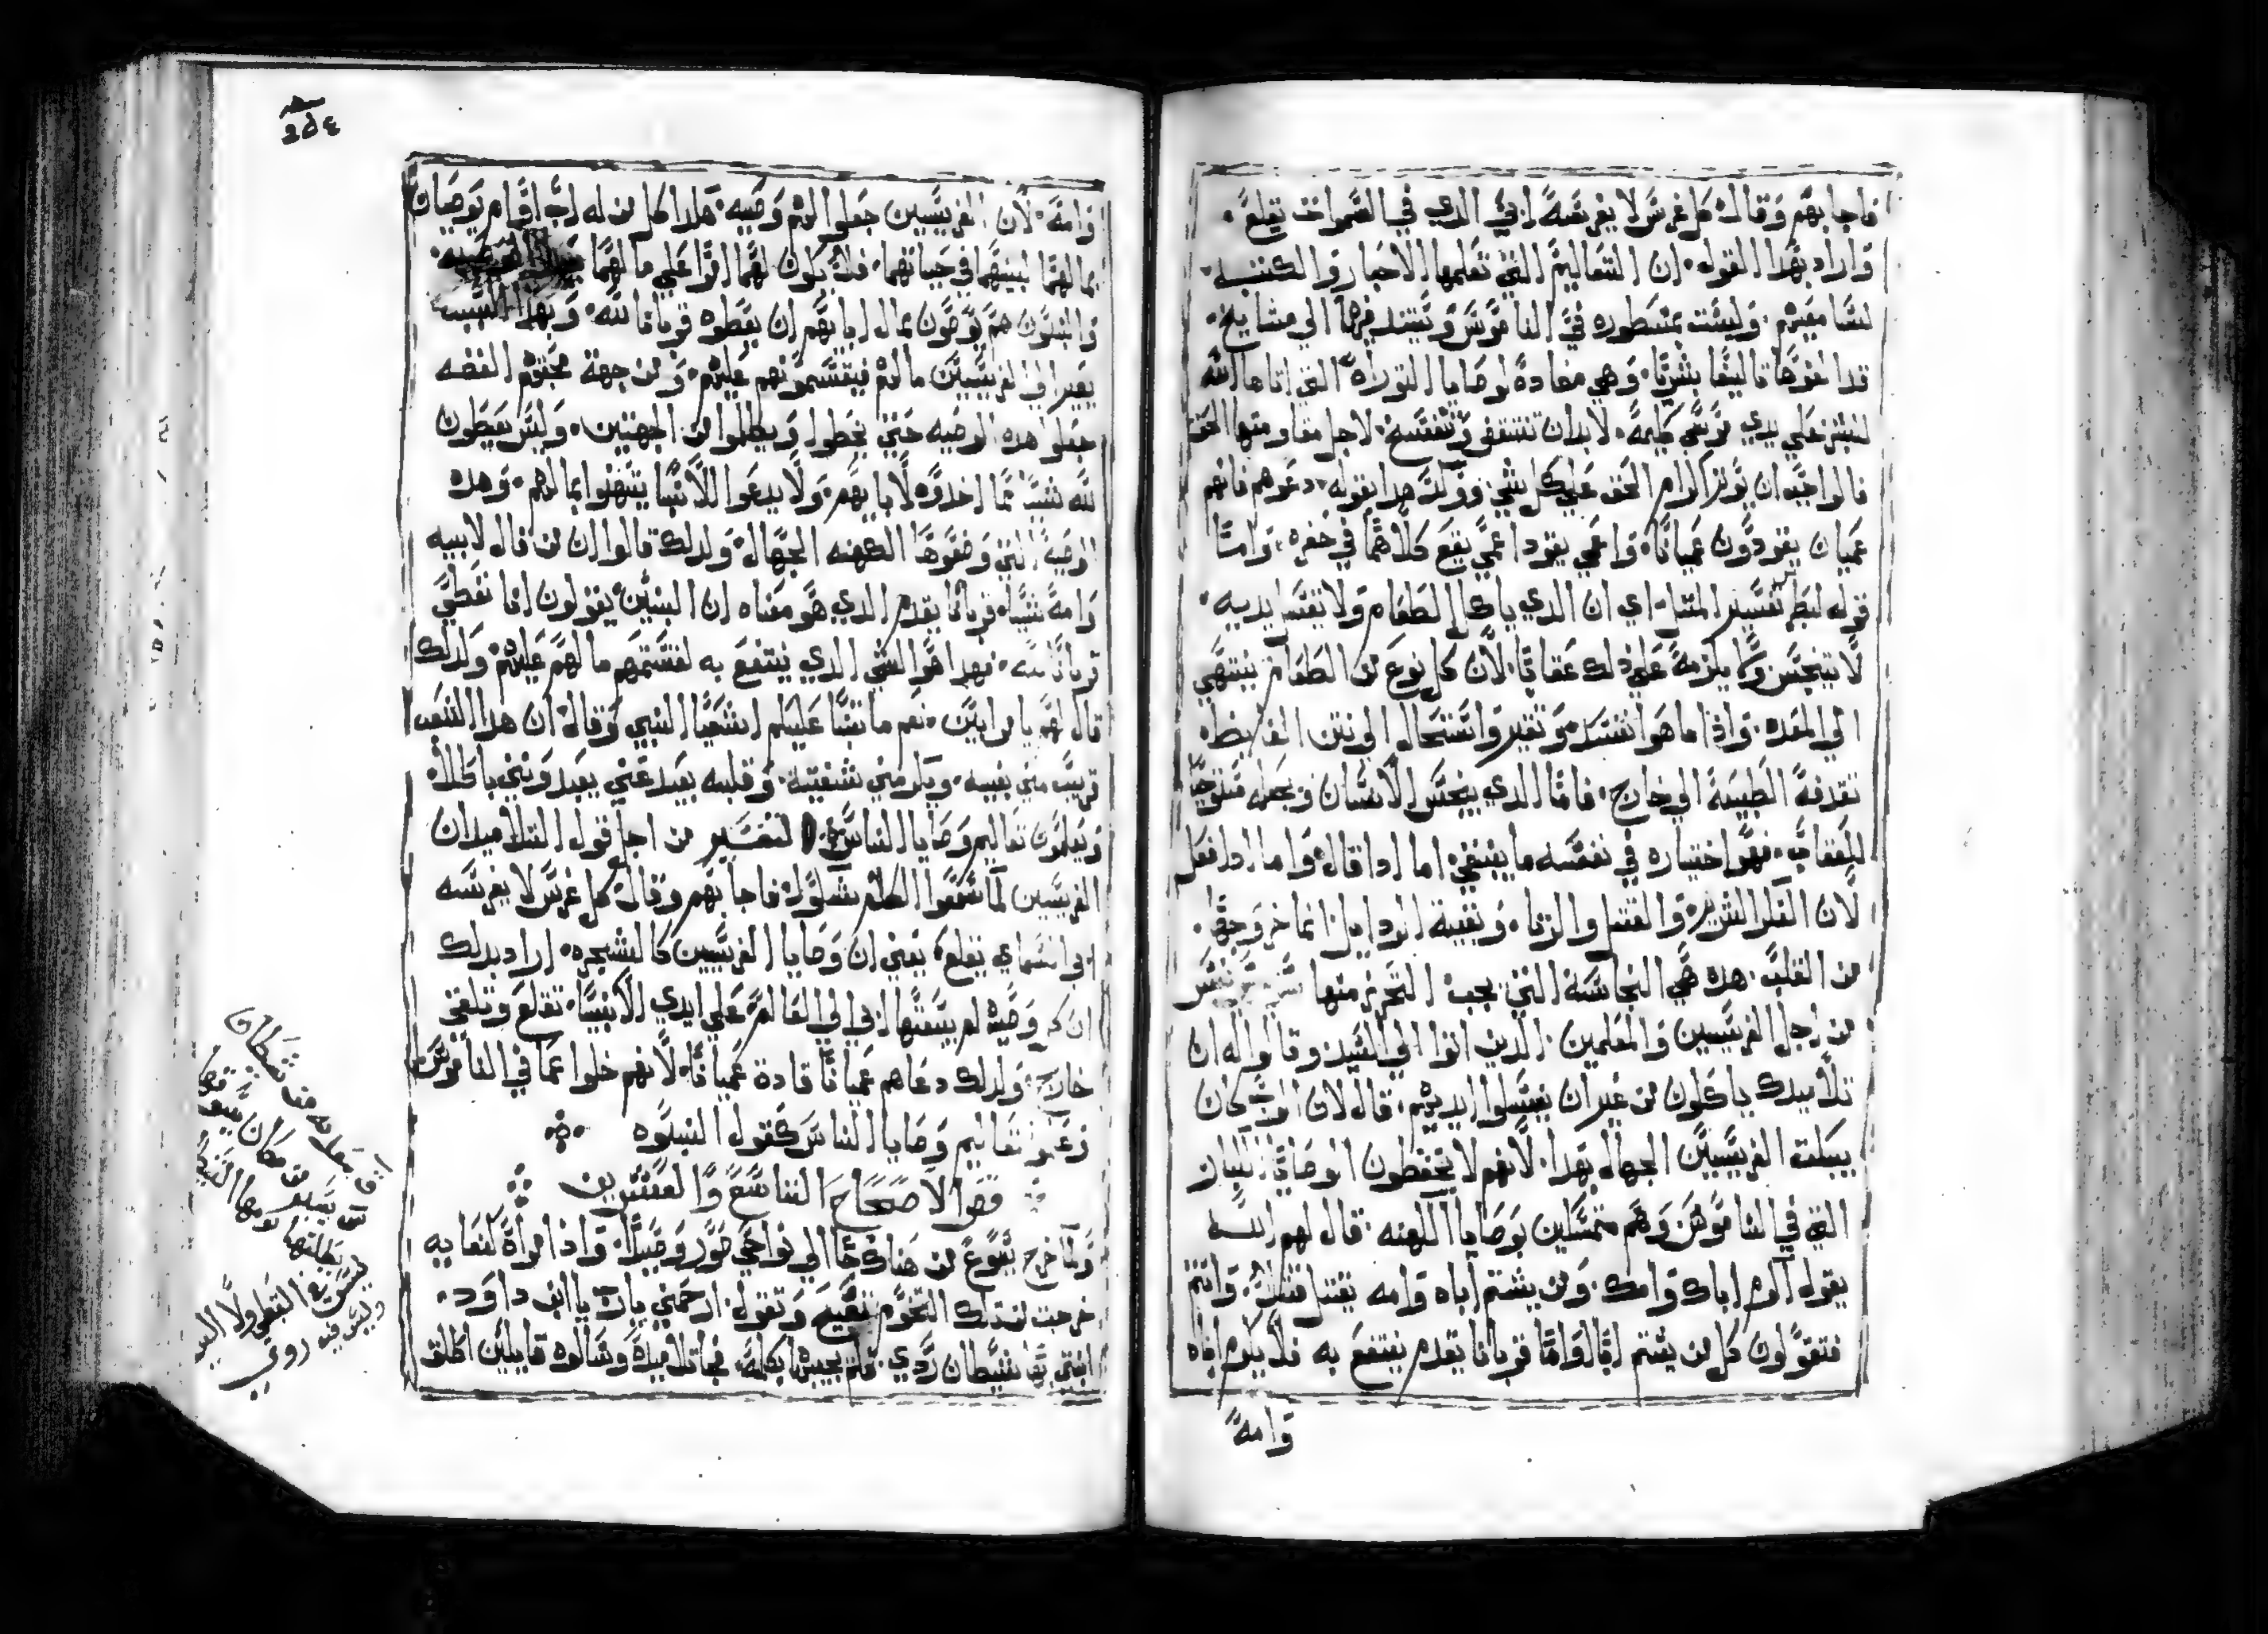 فاجابهم وقال كل غرس لا يغرسه ابي الدي في السموات يقلع
واراد بهدا القول ان التعاليم التي تعلمها الاحبار والكتبه
لسامعيهم وليست مسطوره في الناموس ويسندوها الي مشايخ
قد اتخدوها تاليفا بشريا وهي مضاده لوصايا التوراه التي اتاها الله
للبشر علي يدي موسي كليمه لابد ان تنتقض وتنفسخ لاجل مقاومتها الحق
قالوا حيوان يوتر اكرام الحق علي كل شي ووكد هدا بقوله دعوهم فانهم
عميان يقودون عميانا واعمي يقود اعمي يقع كلاهما في حفره واما
قوله لبطرس تفسير المتل اي ان الدي ياكل الطعام ولا يغسل يديه
لا يتنجس ولا يلزمه علي دلك عقابا لان كل نوع من الطعام ينتهي
الي المعده واذا ما هو انفسد وتغير واستحال الي نتن الغايط
تقدفه الطبيعة الي خارج فاما الدي ينجس الانسان ويجعله مستوجبا
للعقاب فهو اختياره في نفسه ما ينبغي اما ادا قال واما ادا فعل
لان الفكر الشرير والقتل والزنا وبقية الردايل انما خروجها
من القلب هده هي النجاسة التي يجب التحرز منها
من اجل الفريسيين والمعلمين الدين اتوا الي السيد وقالوا له ان
تلاميدك ياكلون من غير ان يغسلوا ايديهم قال لان الرب كان
يبكت الفريسيين الجهال بهدا لانهم لا يحفظون الوصايا الكبار
التي في الناموس وهم متمسكين بوصايا الكهنه قال لهم الله
يقول اكرم اباك وامك ومن يشتم اباه وامه يقتل قتلا وانتم
فتقولون كل من يشتم ابا او اما قربانا يقدم ينتفع به فلا يكرم اباه
وامه
وامه لان الفريسيين جعلوا لهم وصيه هكدا كل من له اب او ام يوصيان
بما لهما لبنيهما في حياتهما فلا يكون لهما امرا علي ما لهما
والبنون هم يوصون بمال ابايهم ان يعطوه قربانا لله وبهدا السبب
يصير الي الفريسيين ما لهم فيقسمونهم عليهم ومن جهة محبتهم الفضه
جعلوا هده الوصيه حتي يخطوا ويبطلوا من الجهتين وليس يعطون
لله شيا مما اخدوه لابايهم ولا يدعوا للابنا يتهنوا بمالهم وهده
الوصية التي وضعوها الكهنه الجهال ولدلك قالوا ان من قال لابيه
وامه شيا قربانا يقدم الدي هو معناه ان البنين يقولون انا نعطي
قربانا لله فهدا هو الشي الدي ينتفع به لقسمتهم ما لهم عليهم ولدلك
قال لهم يا مرايين نعم ما تنبا عليكم اشعيا النبي وقال ان هدا الشعب
قريب مني بفيه ويكرمني بشفتيه وقلبه بعيد عني يعبدونني باطلا
ويعلمون تعاليم وصايا الناس التفسير من اجل قول التلاميد ان
الفريسيين لما سمعوا الكلام شكوك فاجابهم وقال كل غرس لا يغرسه
ابي السماي يقلع يعني ان وصايا الفريسيين كالشجره اراد بدلك
ان كل وصية لم يبعتها ابي الي العالم علي ايدي الانبيا تقلع وتلقي
خارج ولدلك دعاهم عميانا قادة عميانا لانهم خلوا عما في الناموس
وعملوا تعاليم وصايا الناس كقول النبوه
فص الاصحاح التاسع والعشرين
ولما خرج يسوع من هناك جا الي نواحي صور وصيدا واذا امراة كنعانيه
خرجت من تلك التخوم تصيح وتقول ارحمني يا رب يا ابن داود
ابنتي بها شيطان ردي فلم يجيبها بكلمه فجا تلاميده وسالوه قايلين اطلق